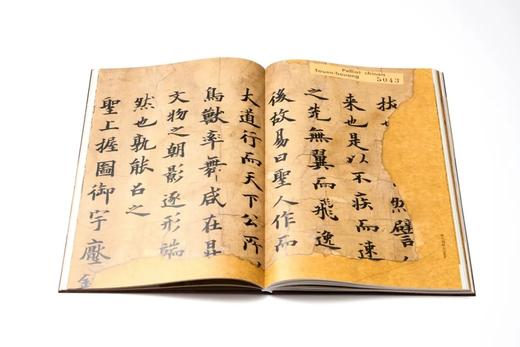 Pelliot chinois
Touen-houang 5043
然譬
來也是以不疾而速
之先無翼而飛逸
後故易曰聖人作而
大道行而天下公所
鳥獸率舞咸在
文物之朝影逐形端
然也孰能召之
聖上握圖御宇壓